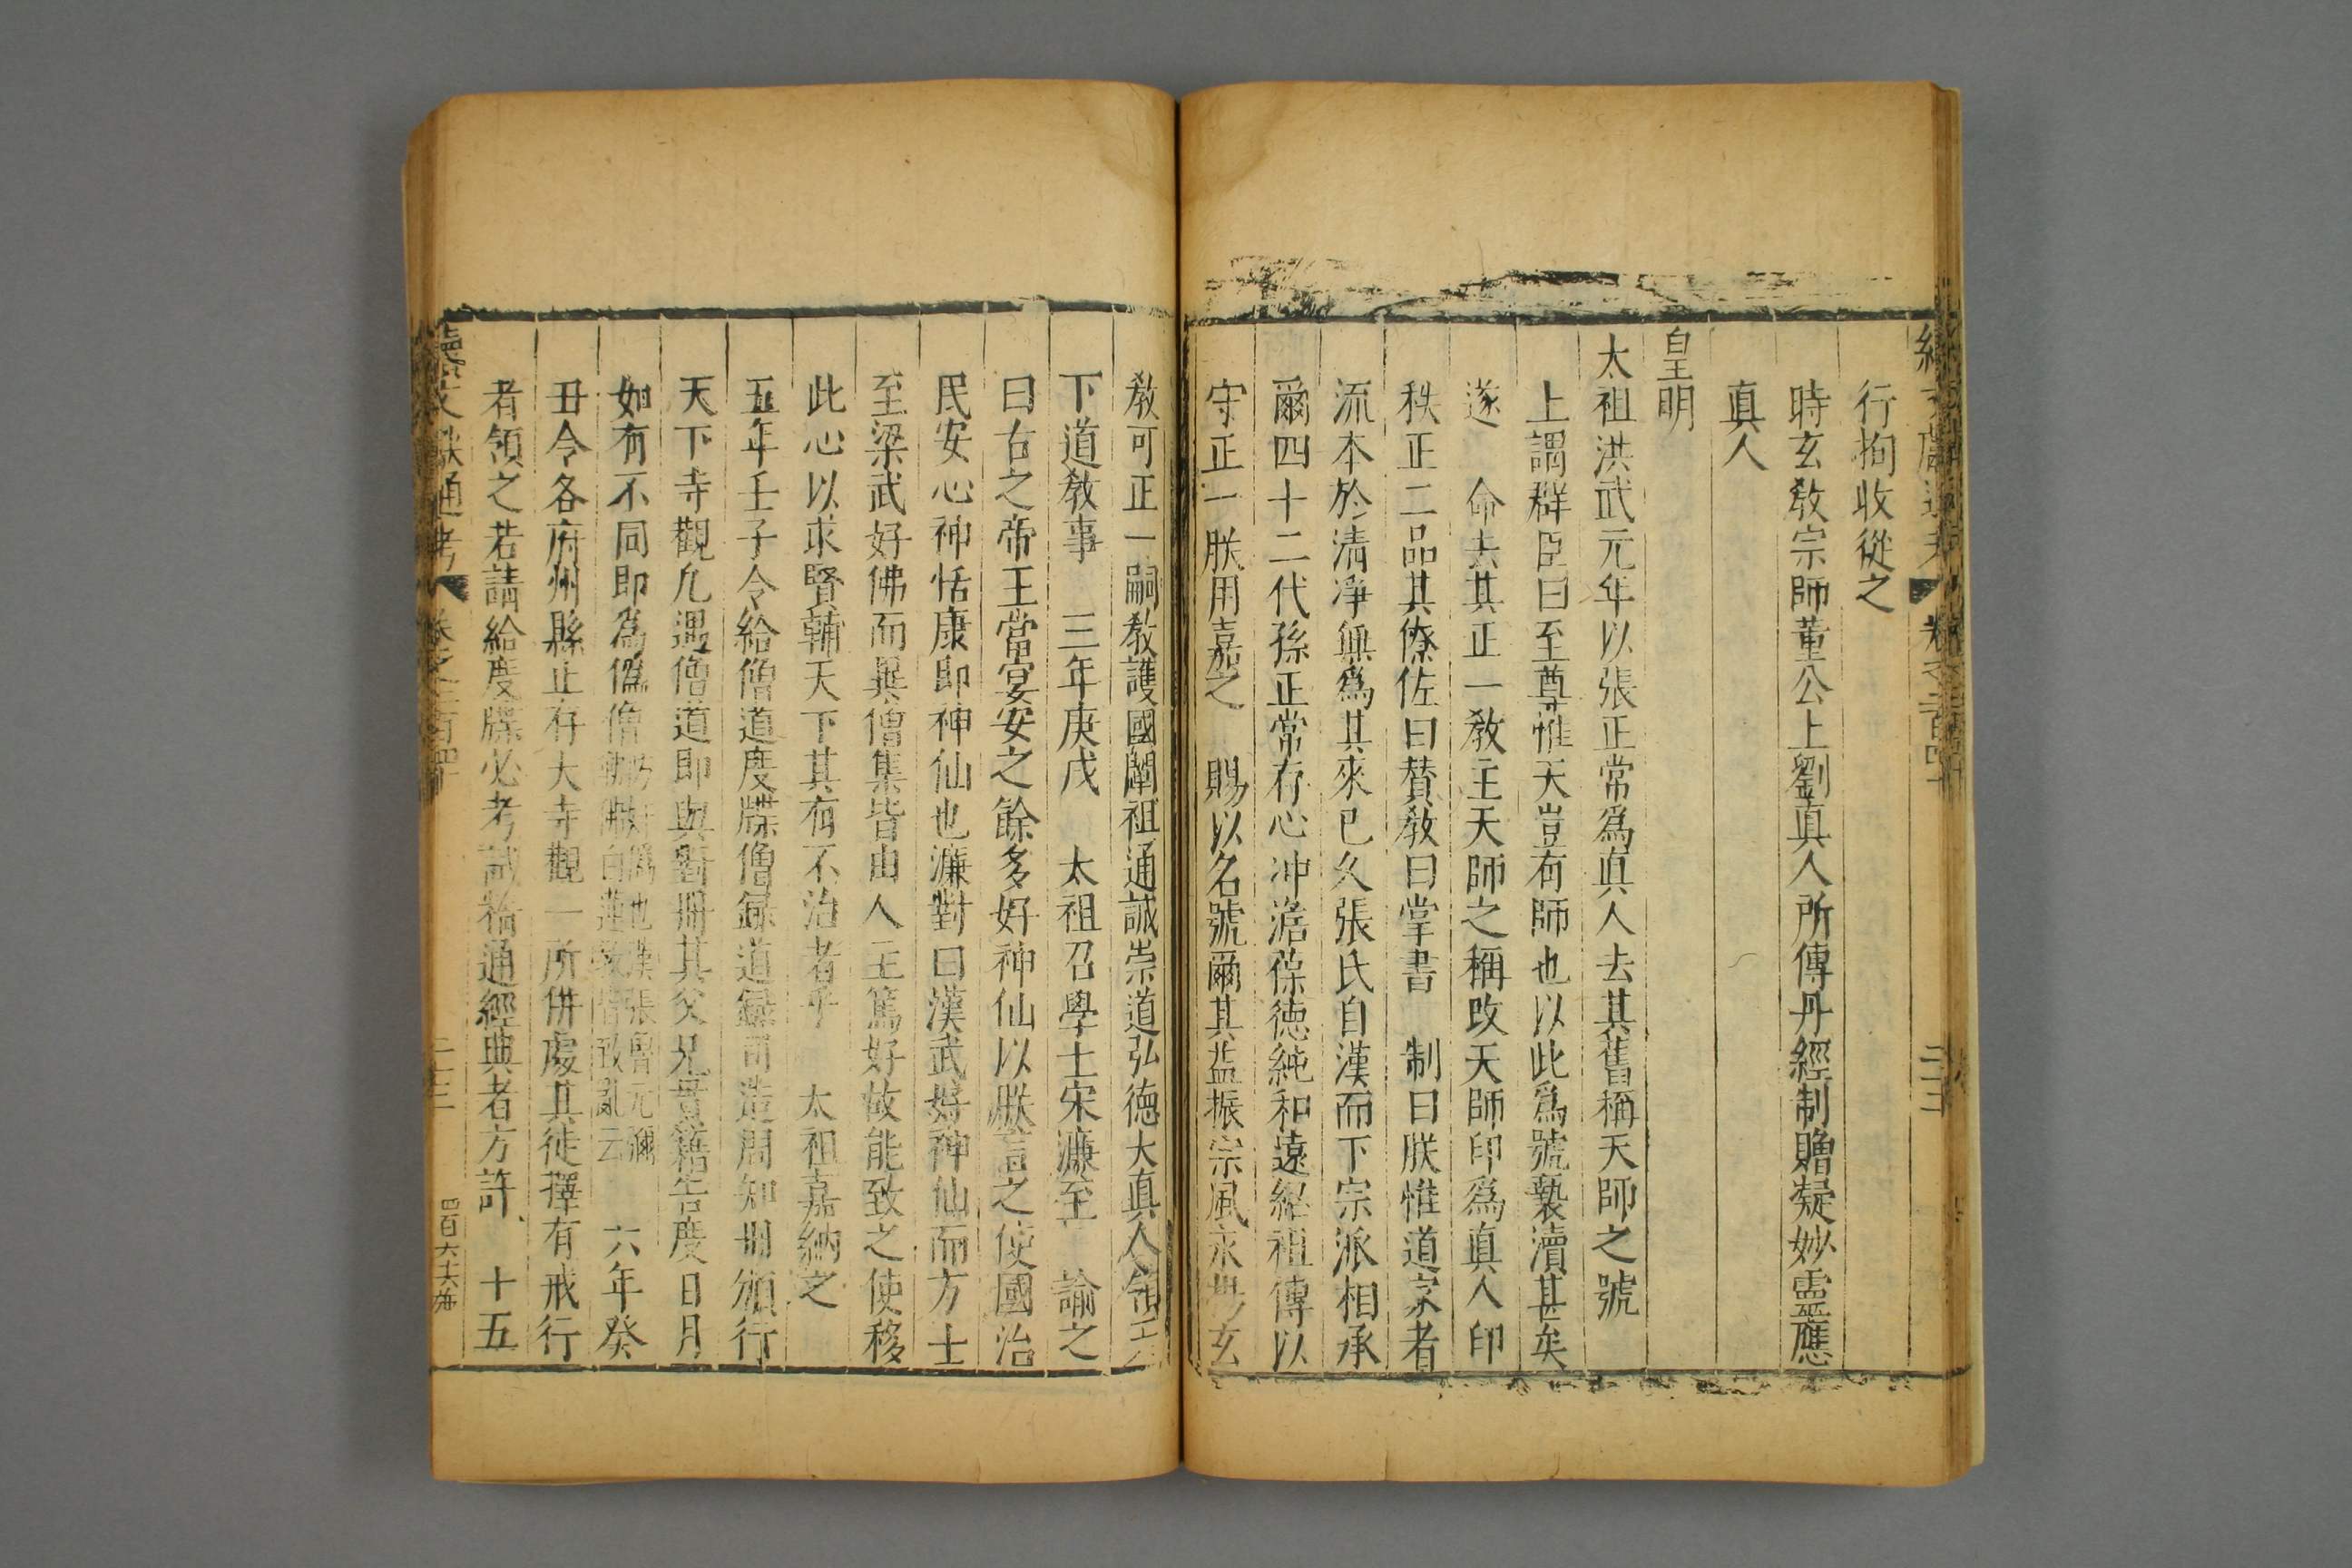 續文獻通考
卷之二百四十
二十三
行拘收從之
時玄教宗師董公上劉真人所傳丹經制贈凝妙靈應
真人
皇明
太祖洪武元年以張正常爲真人去其舊稱天師之號
上謂群臣曰至尊惟天豈有師也以此爲號褻瀆甚矣
遂 命去其正一教主天師之稱改天師印爲真人印
秩正二品其僚佐曰贊教曰掌書 制曰朕惟道家者
流本於清淨無爲其來已久張氏自漢而下宗派相承
爾四十二代孫正常存心冲澹葆德純和遠紹祖傳以
守正一朕用嘉之 賜以名號爾其益振宗風永擧玄
教可正一嗣教護國闡祖通誠崇道弘德大真人領天
下道教事 三年庚戌 太祖召學士宋濂至 諭之
曰古之帝王當宴安之餘多好神仙以朕言之使國治
民安心神恬康即神仙也濂對曰漢武好神仙而方士
至梁武好佛而異僧集皆由人主篤好故能致之使移
此心以求賢輔天下其有不治者乎 太祖嘉納之
五年壬子令給僧道度牒僧錄道錄司造周知册頒行
天下寺觀凡遇僧道即與對册其父兄貫籍告度日月
如有不同即爲僞僧
爲也漢張魯元瀰
白蓮教 致亂云
六年癸
丑令各府州縣止存大寺觀一所併處其徒擇有戒行
者領之若請給度牒必考試精通經典者方許 十五
續文獻通考
卷之二百四十
二十三
四百六十六